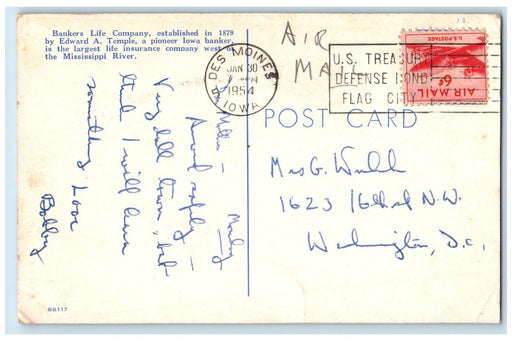 Bankers Life Company, established in 1879
by Edward A. Temple, a pioneer Iowa banker,
is the largest life insurance company west of
the Mississippi River.
AIR
MAIL
DES MOINES
JAN 30
1954
IOWA
U.S. TREASURY
DEFENSE BOND
FLAG CITY
U.S. POSTAGE
6¢
AIR MAIL
POST CARD
Monday
Mother —
Arrived safely —
Very dull town, but
think I will learn
something. Love
Bobby
Mrs G. Webb
1623 16th St N.W.
Washington, D.C.
BB117